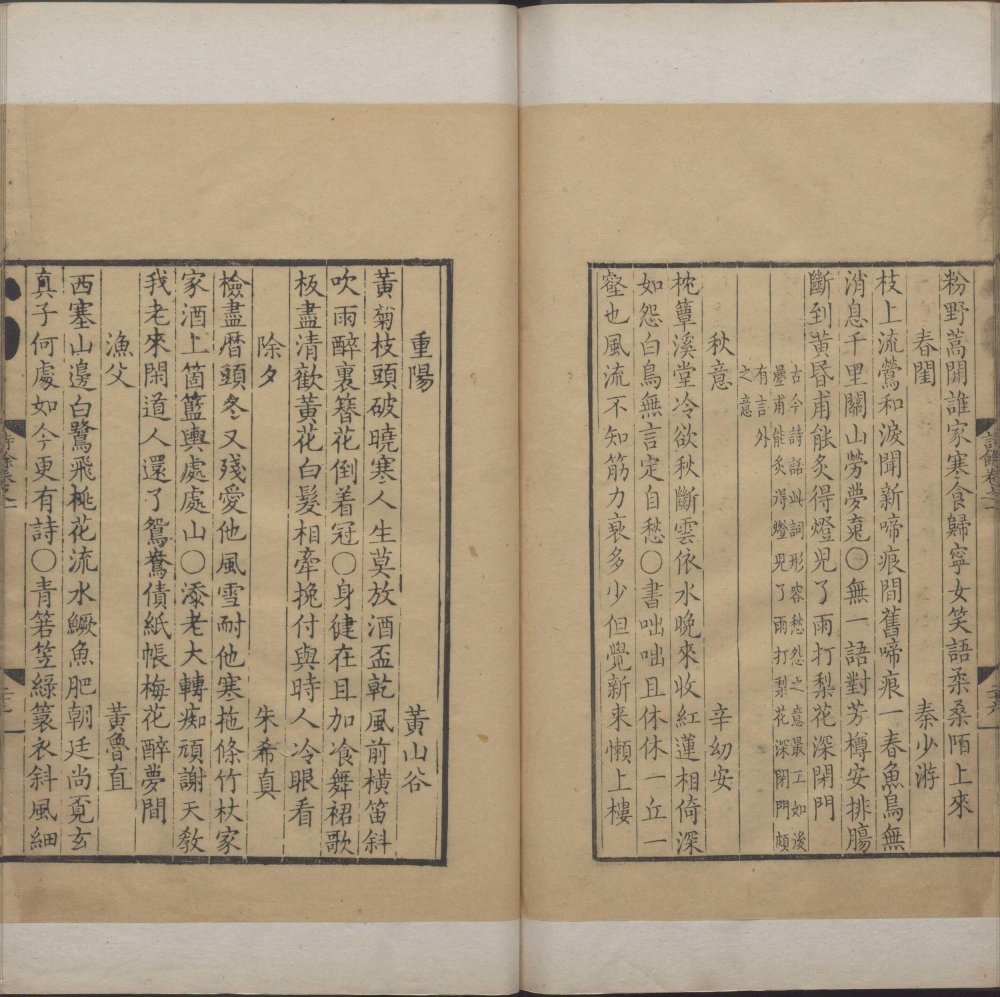 粉野蒿開誰家寒食歸寧女笑語柔桑陌上來
春閨 秦少游
枝上流鶯和淚聞新啼痕間舊啼痕一春魚鳥無
消息千里關山勞夢䰟〇無一語對芳樽安排膓
斷到黃昏甫能炙得燈兒了雨打梨花深閉門
古今詩話此詞形容愁怨之意最工如後
疊甫能炙得燈兒了雨打梨花深閉門頗
有言外
之意
秋意 辛幼安
枕簟溪堂冷欲秋斷雲依水晚來收紅蓮相倚深
如怨白鳥無言定自愁〇書咄咄且休休一丘一
壑也風流不知筋力衰多少但覺新来懶上樓
詩餘卷之一
二十六
重陽 黃山谷
黃菊枝頭破曉寒人生莫放酒盃乾風前橫笛斜
吹雨醉裏簪花倒着冠〇身健在且加飡舞裙歌
板盡清歡黃花白髮相牽挽付與時人冷眼看
除夕 朱希真
檢盡曆頭冬又殘愛他風雪耐他寒拖條竹杖家
家酒上箇籃輿處處山〇添老大轉痴頑謝天敎
我老來閑道人還了鴛鴦債紙帳梅花醉夢間
漁父 黃魯直
西塞山邊白鷺飛桃花流水鱖魚肥朝廷尚覔玄
真子何處如今更有詩〇青箬笠綠簑衣斜風細